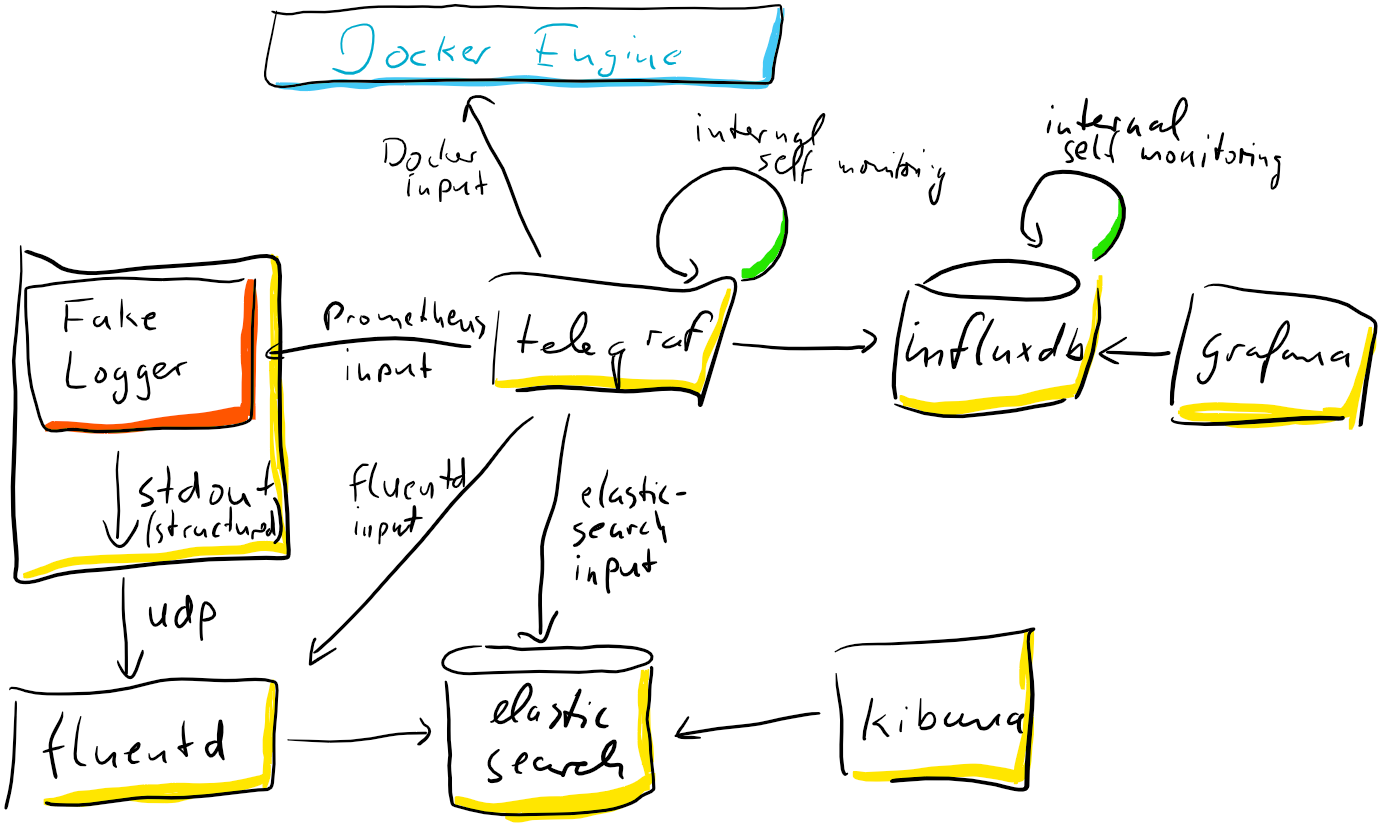 Docker Engine
Docker
input
internal
self monitoring
internal
self monitoring
Fake
Logger
Prometheus
input
telegraf
influxdb
grafana
stdout
(structured)
fluentd
input
elastic-
search
input
udp
fluentd
elastic
search
kibana